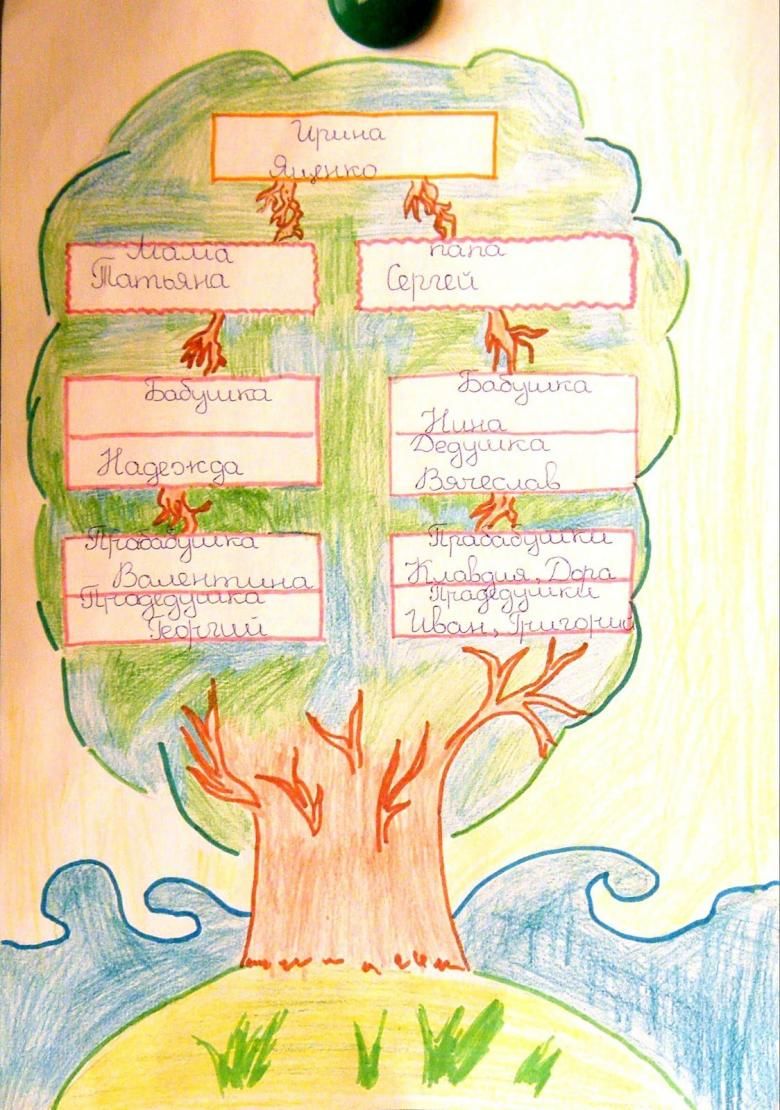 Ирина
Ященко
Мама
Татьяна
папа
Сергей
Бабушка
Надежда
Бабушка
Нина
Дедушка
Вячеслав
Прабабушка
Валентина
Прадедушка
Георгий
Прабабушки
Клавдия, Дора
Прадедушки
Иван, Григорий